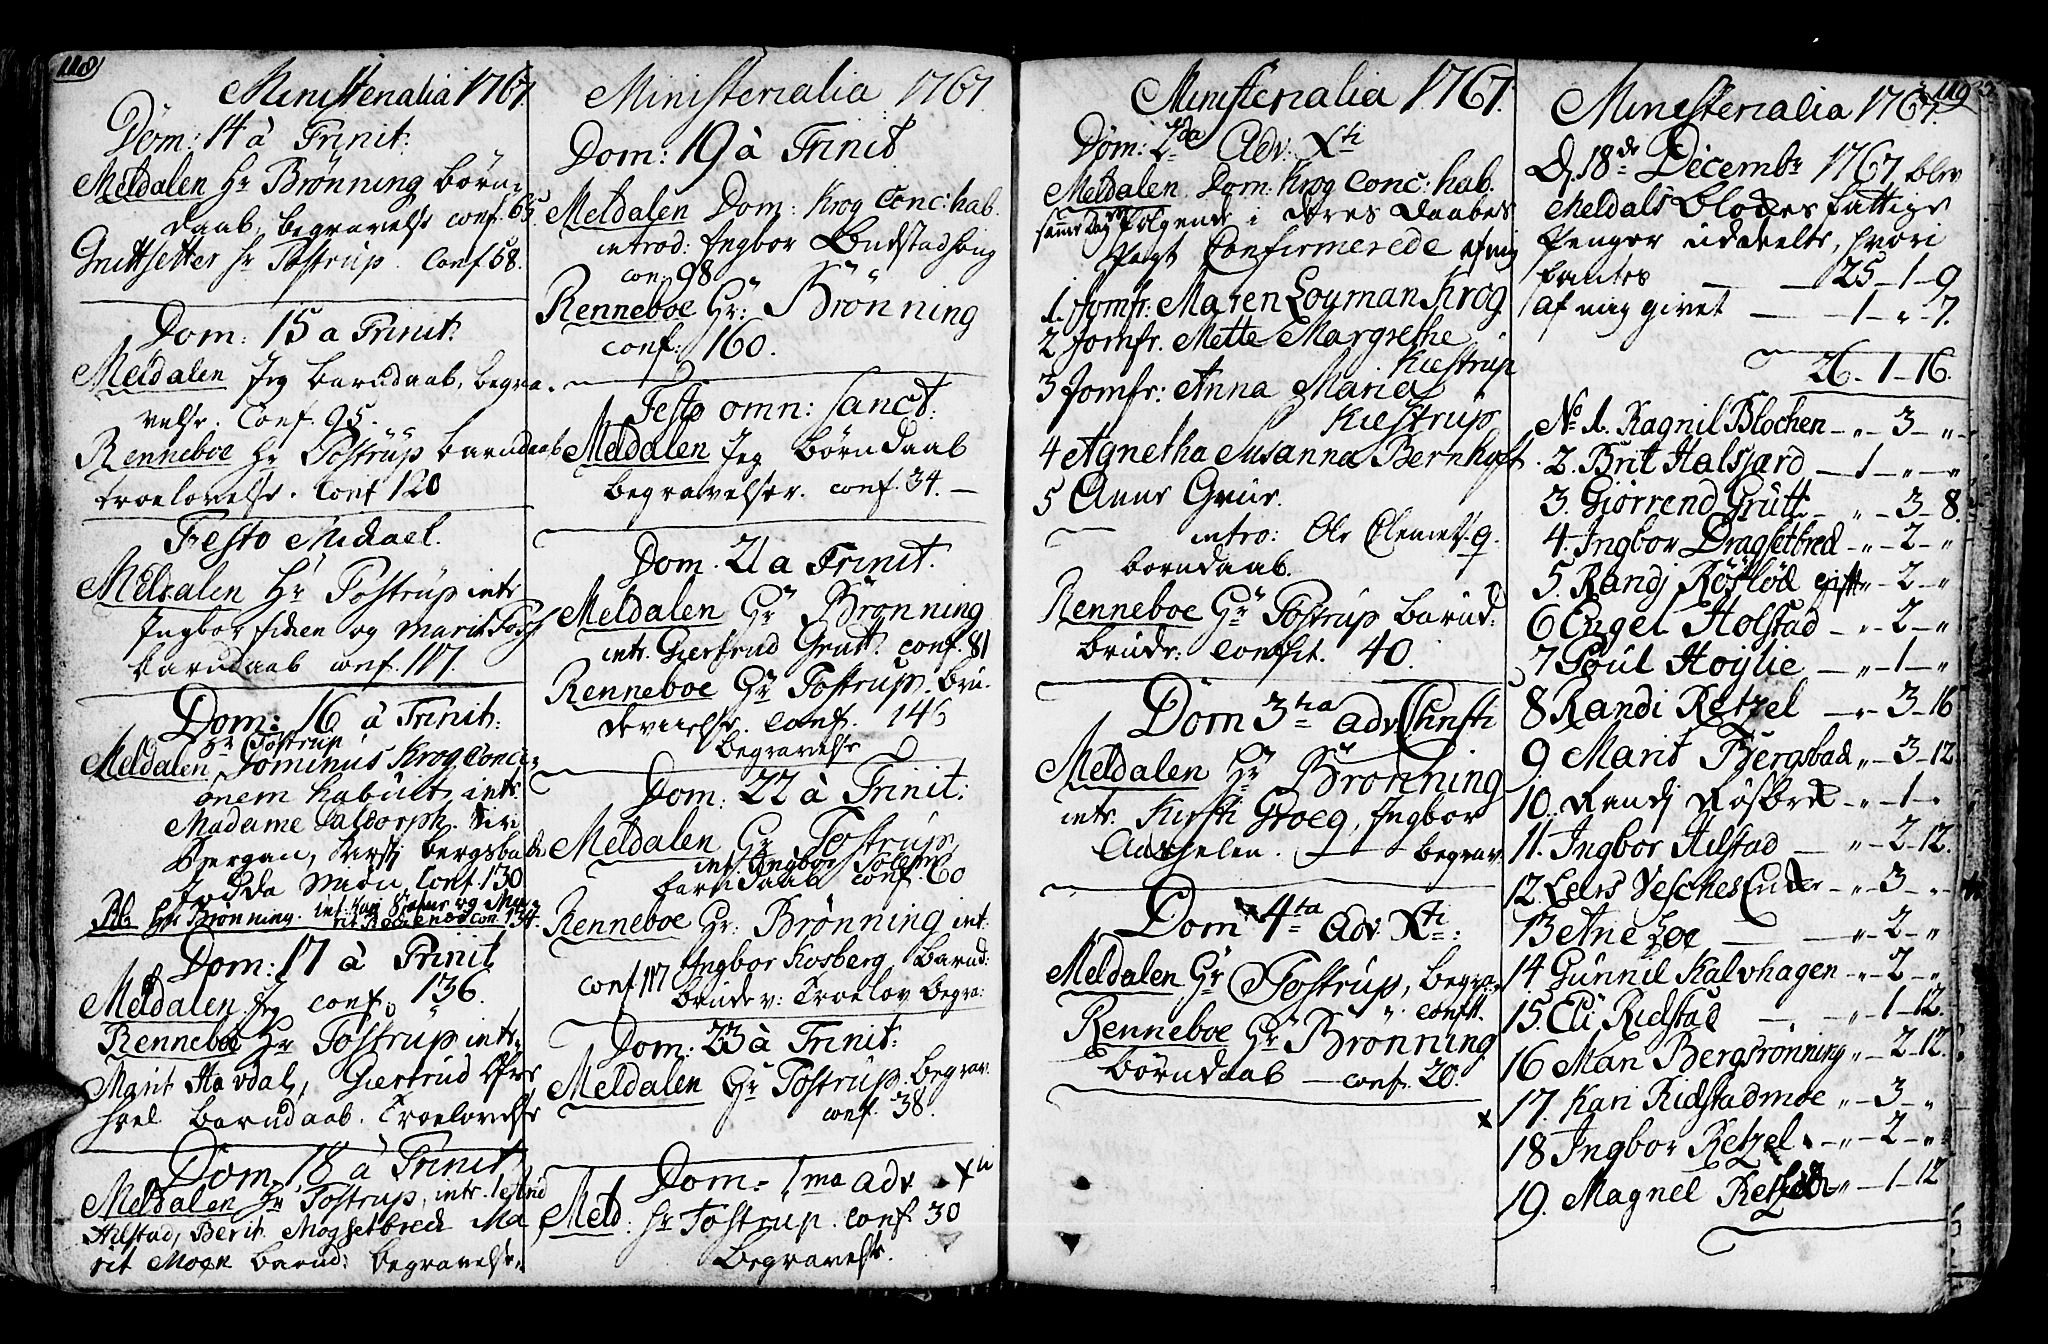 118
Ministerialia 1767.
Dom: 14 à Trinit:
Meldalen Hr Brønning Børn-
daab, begravelse conf. 65
Gruttsetter Hr Tostrup. Conf 58.
Dom: 15 a Trinit:
Meldalen Jeg barndaab, begra-
velse. Conf. 95.
Renneboe Hr Tostrup barndaab
troelovelse. Conf 120
Festo Michael.
Meldalen Hr Tostrup intr
Ingbor og Marit
barndaab conf. 117.
Dom: 16 à Trinit:
Hr Tostrup
Meldalen, Dominus Krog Conci-
onem habuit, intr.
Madame Saldorph. Siri
Bergan, Kirsti bergsbade
Conf. 130
Rb. Hr Brønning. int. Kari og Ma-
rit con. 134.
Dom: 17 à Trinit
Meldalen Jeg conf. 136.
Renneboe Hr Tostrup intr.
Marit Havdal, Giertrud
barndaab. Troelovelse
Dom 18 à Trinit
Meldalen Hr Tostrup, intr.
Hilstad, Berit Mogsetbrede Ma
rit Moen barnd: begravelse.
Ministerialia 1767.
Dom: 19 à Trinit.
Meldalen Dom: Krog Conc: hab.
introd: Ingbor
con. 98
Renneboe Hr: Brönning
conf: 160.
Festo omn: Sanct:
Meldalen Jeg Börndaab
begravelser. conf. 34.—
Dom. 21 a Trinit.
Meldalen Hr Brønning
intr. Giertrud Grutt. conf. 81
Renneboe Hr Tostrup. bru-
devielse. conf. 145
begravelse
Dom: 22 à Trinit:
Meldalen Hr Tostrup
int. Ingbor Solem
barndaab conf. 60
Renneboe Hr: Brønning int.
Ingbor Kosberg. Barnd:
conf 117
brudev: Troelov begra:
Dom: 23 à Trinit:
Meldalen Hr Tostrup. begrav.
conf. 38.
Dom- 1ma adv Xti
Meld: Hr Tostrup. conf 30
Begravelse.
Ministerialia 1767.
Dom: 2da Adv: Xti
Meldalen. Dom: Krog Conc: hab.
samme Dag Følgende i deres Daabes
Pagt Confirmerede af mig
1. Jomfr: Maren Loyman Krog
2 Jomfr. Mette Margrethe
Kiestrup
3 Jomfr: Anna Maria
Kiestrup
4 Agnetha Susanna Bernhoft.
5 Anne Grue.
intro: Ole Clemets. 9.
borndaab.
Renneboe Hr Tostrup Barnd:
brude: Confit. 40.
Dom 3tia adv Christi
Meldalen Hr Brønning
intr. Kirsti Groeg, Ingbor
Aarhelen. — begrav.
Dom 4ta Adv. Xti:
Meldalen Hr Tostrup, begra-
„ confit.
Renneboe Hr Brønning
börndaab — conf. 20.
x
119
Ministerialia 1767.
D. 18de Decembr 1767 blev
Meldals Blokkes fattige
Penger uddeelte, hvori
fantes — 25-1-9
af mig givet — 1-„-7.
26-1-16.
No 1. Ragnil Blochen-„-3-„-
2. Brit Halsjard —1-„-„
3. Giørrend Grutt-„-3-8.
4. Ingbor Dragsetbred-„-2-„
5. Randj Røsslöd gift„-2-„
6 Engel Holstad-„-2-„
7 Poul Hoylie-„-1-„
8 Randi Retzel-„-3-16
9 Marit Bergsbad „-3-12
10. Randj Røsbred-„-1-„
11. Ingbor Hilstad-„-2-12.
12. Lars Vesches Enke-„-3-„
13 Ane Loe-„-2-„
14 Gunnil Kalvhagen-„-2-„
15. Eli Ridstad-„-1-12.
16 Mari Bergsrønning „-2-12.
17. Kari Ridstadmoe „-3-„
18 Ingbor Retzel.-„-2-„
19. Magnel „-1-12